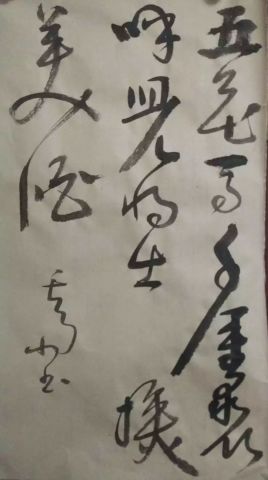 五花马千金裘
呼儿将出换
美酒